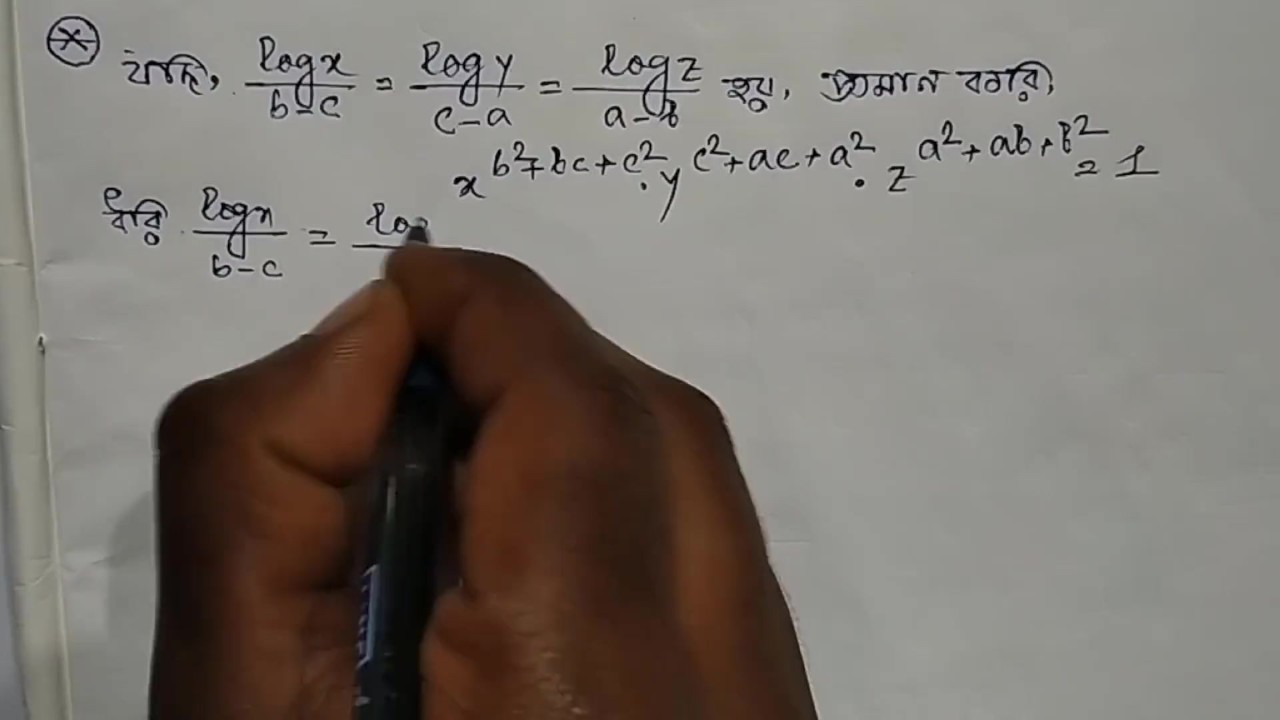 যদি, logx/b-c = logy/c-a = logz/a-b হয়, প্রমান করি,
x^b²+bc+c² . y^c²+ac+a² . z^a²+ab+b² = 1
ধরি logx/b-c = lo